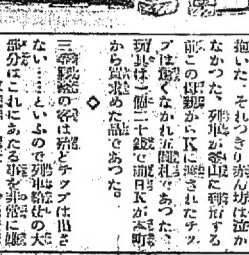 抱いた、それつきり赤ん坊は泣か
なかつた、列車が釜山に到着する
前この母親からKに渡されたチッ
プは軽くなかれ五圓札であつた、
玩具は一個二十銭で翌日Kが本町
から買求めた品であつた。
◇
三等寝台の客は殆どチップは出さ
ない……といふので列車給仕の大
部分はこれにあたる事を非常に嫌